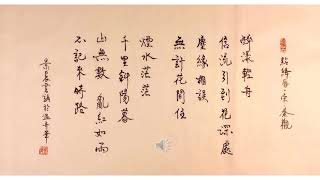 點絳唇 宋 秦觀
醉漾輕舟
信流引到花深處
塵緣相誤
無計花間住
煙水茫茫
千里斜陽暮
山無數 亂紅如雨
不記來時路